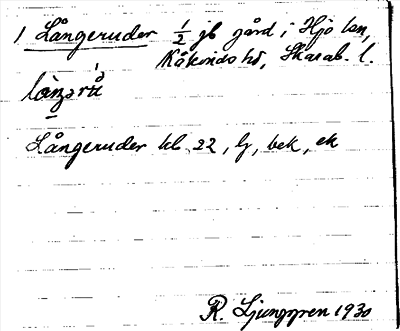 1 Långeruder 1/2 jb gård i Hjo lan,
Kåkinds hd, Skarab. l.
Långeruder kl 22, lj, bek, ek
R. Ljunggren 1930